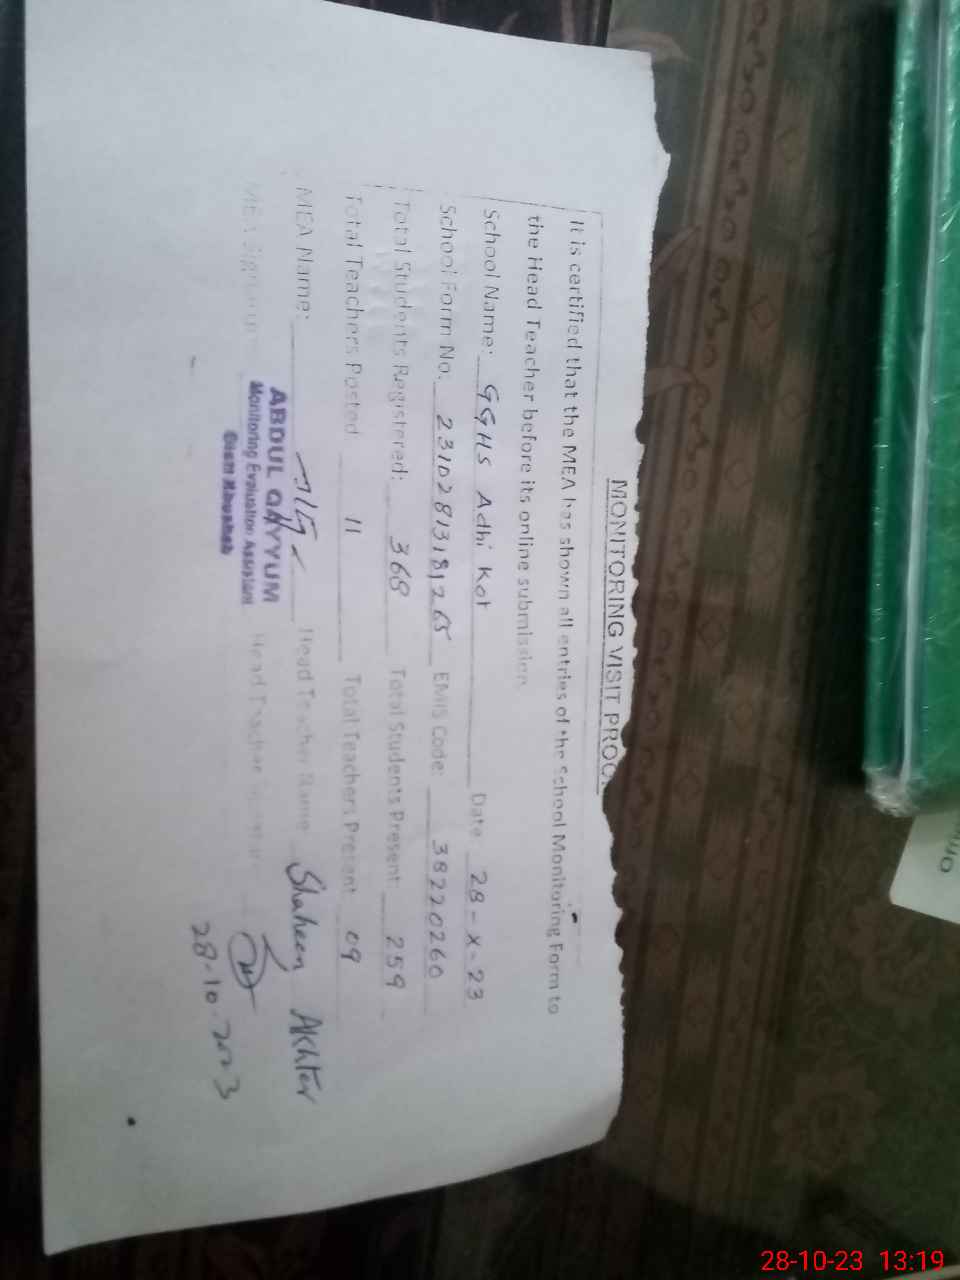 MONITORING VISIT PROO
It is certified that the MEA has shown all entries of the School Monitoring Form to
the Head Teacher before its online submission.
School Name: GGHS Adhi Kot Date 28-X-23
School Form No: 23102813181265 EMIS Code: 38220260
Total Students Registered: 368 Total Students Present: 259
Total Teachers Posted 11 Total Teachers Present: 09
MEA Name: Head Teacher Name Shaheen Akhter
MEA Signature Head Teacher Signature
ABDUL QAYYUM
Monitoring Evaluation Assistant
28-10-2023
28-10-23 13:19